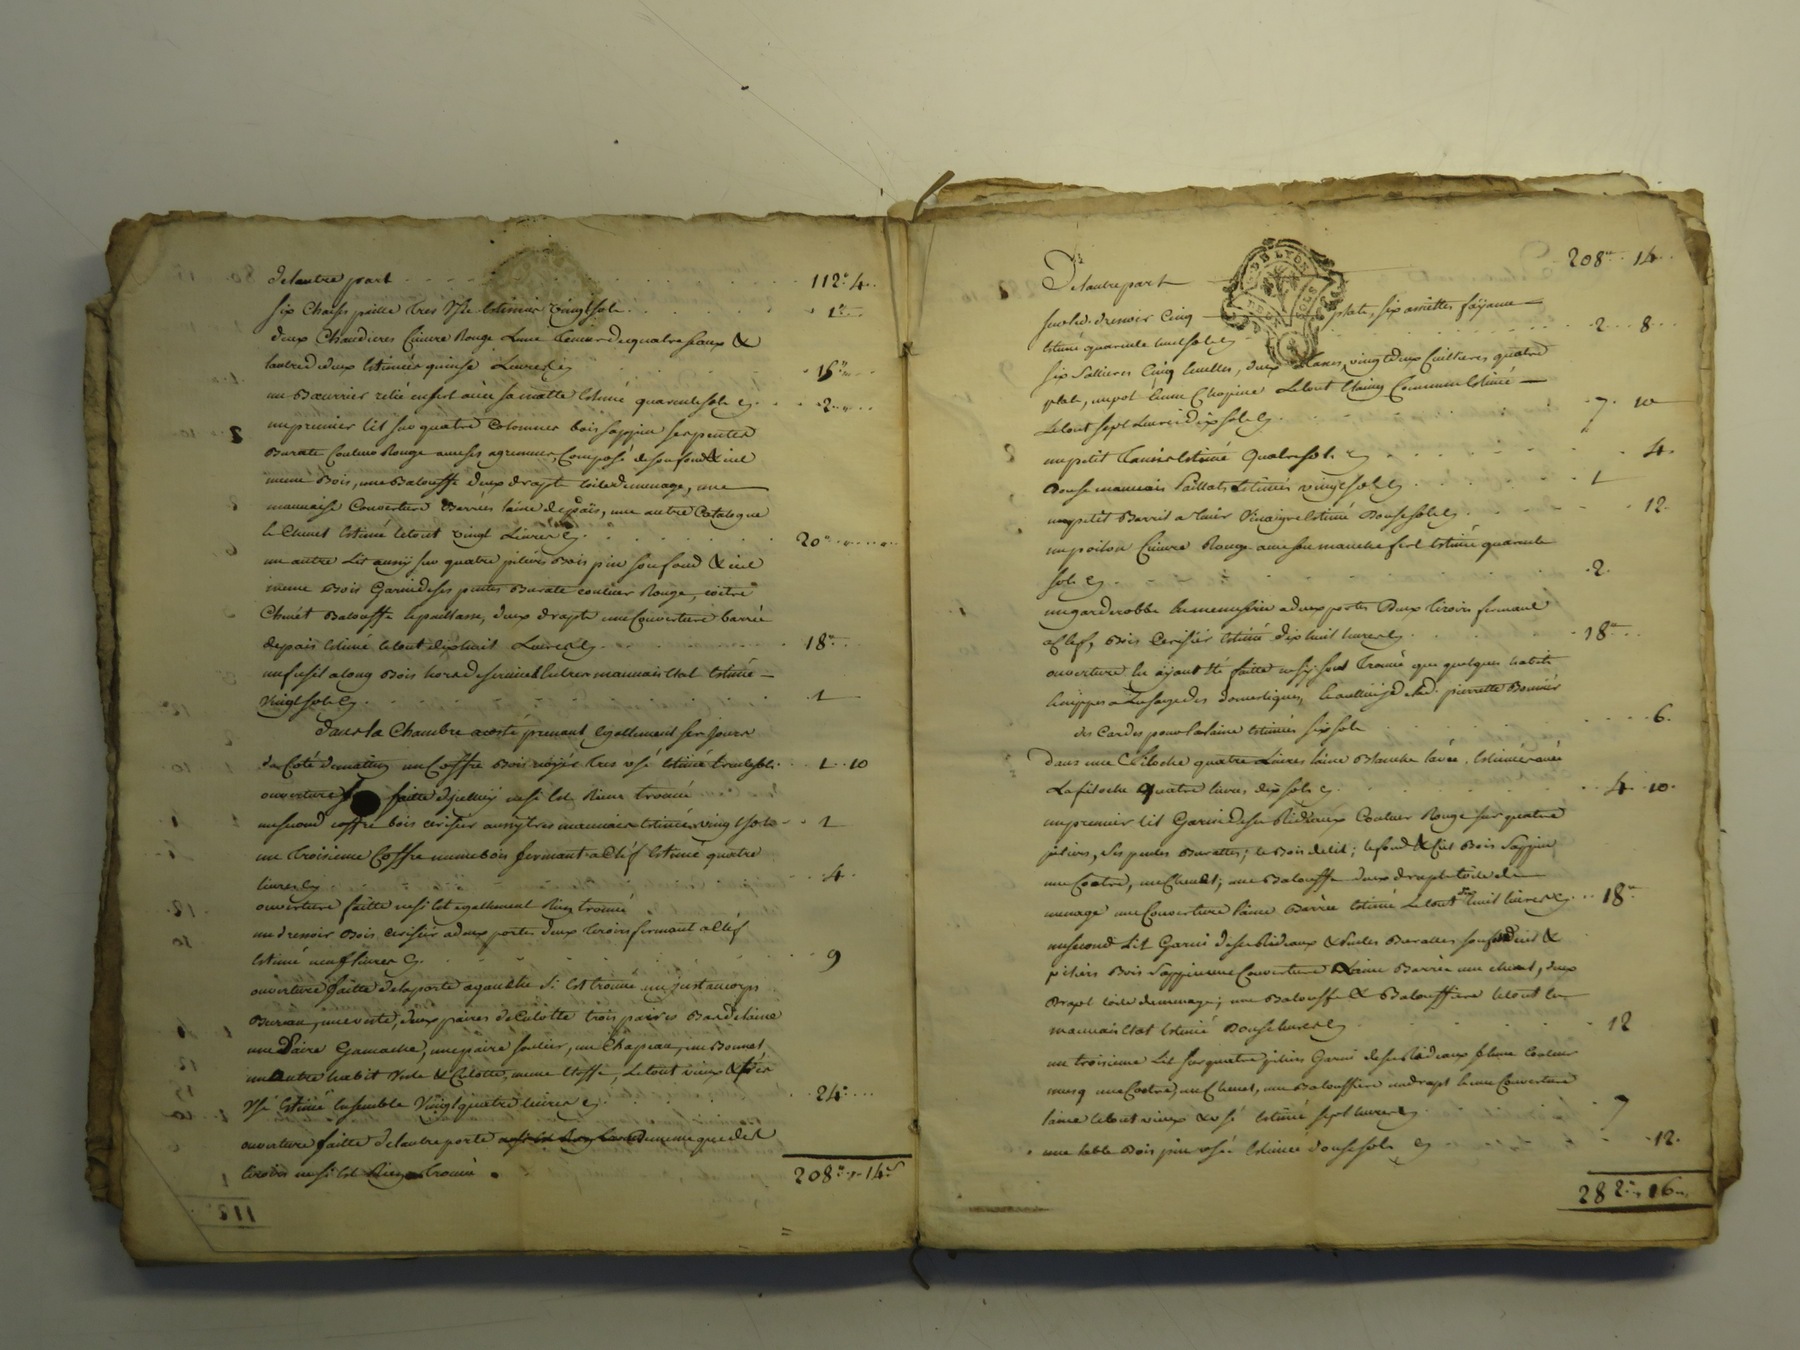 De lautre part 112 " 4
six Chaises paille tres Usé Estimées vingt sols 1 "
deux Chaudieres Cuivre Rouge Lune tenant quatre seaux &
lautre deux Estimées quinze Livres Cy 15 "
un Beurrier relié en fert avec sa matte Estimé quarente sols Cy 2 "
un premier lit sur quatre Colonnes bois sappin ses pentes
Burate Couleur Rouge avec ses agremens, Composé de son fond & ciel
meme Bois, une Balouffe deux draps toile de menage, une
mauvaise Couverture Barrée laine de païs, une autre Catalogne
le Chevet Estimé le tout vingt Livres Cy 20 "
un autre Lit aussy sur quatre piliers Bois pin son fond & ciel
meme Bois Garni de ses pentes Burate couleur Rouge, coëtre
Chevet Balouffe le paillasse, deux drapts une Couverture barrée
de pais Estimé le tout dixhuit Livres Cy 18 "
un fusil along Bois hors de service & en tres mauvais Etat Estimé
vingt sols Cy 1
Dans la Chambre a coté prenant egallement ses jours
du Coté de matin un Coffre Bois noyer tres usé Estimé trente sols 1 10
ouverture faitte djcelluy ne si Est Rien trouvé
un second coffre bois cerisier aussy tres mauvais Estimé vingt sols 1
un troisieme Coffre meme bois fermant a Cléf Estimé quatre
livres Cy 4
ouverture faitte ne si Est egallement Rien trouvé
un dressoir Bois cerisier a deux portes deux tiroirs fermant a Cléf
Estimé neuf livres Cy 9
ouverture faitte de la porte a gauche si Est trouvé un justaucorps
Bureau, une veste, deux paires de Culotte trois paires Bas de laine
une Paire Gamache, une paire soulier, un Chapeau, un Bonnet
un Autre habit Veste & Culotte, meme Etoffe, Le tout vieux & tres
Usé Estimé Ensemble Vingt quatre livres Cy 24 "
ouverture faitte de lautre porte de meme que des
tiroirs ne si Est Rien trouvé
208 " 14 s
De lautre part 208 " 14
DE LYON
sur led. dressoir Cinq plats, six assiettes fayance
Estimé quarente huit sols Cy 2 8
six Sallieres Cinq Ecuelles, deux Tasses, vingt deux Cuillieres quatre
plats, un pot & une Chopine Le tout Etaing Commun Estimé
Le tout sept Livres dix sols Cy 7 10
un petit Tamis Estimé Quatre sols Cy 4
Douse mauvais Paillats Estimés vingt sols Cy 1
un petit Barril a tenir Vinaigre Estimé Douse sols Cy 12
un poilon Cuivre Rouge avec son manche fert Estimé quarente
sols Cy 2
une garderobbe En menuiserie a deux portes Deux tiroirs fermant
a Clef, Bois Cerisier Estimé dix huit livres Cy 18 "
ouverture En ayant Eté faitte ne sy sont trouvé que quelques habits
& nippes a Lusage des domestiques, & pierrette Bonnier
des Cardes pour la laine Estimées six sols 6
Dans une Filoche quatre Livres laine Blanche lavée, Estimée avec
La filoche quatre livres dix sols Cy 4 10
un premier lit Garni de ses Rideaux Couleur Rouge sur quatre
piliers, ses pentes Burattes; le Bois de lit; le fond & Ciel Bois Sappin
une Coëtre, un Chevet; une Balouffe deux drapts toile de
menage une Couverture laine Barrée Estimé Le tout dix huit livres Cy 18 "
un second Lit Garni de ses Rideaux & Pentes Burattes son fond ciel &
piliers Bois Sappin une Couverture Laine Barrée une chevet, deux
Drapt toile de menage; une Balouffe & Balouffiere le tout En
mauvais Etat Estimé Douse livres Cy 12
un troisieme Lit sur quatre piliers Garni de ses Rideaux filure Couleur
musq une Coëtre, un Chevet, une Balouffiere un drapt & une Couverture
laine le tout vieux & usé Estimé sept livres Cy 7
une table Bois pin usée Estimée douse sols Cy 12
282 " 16